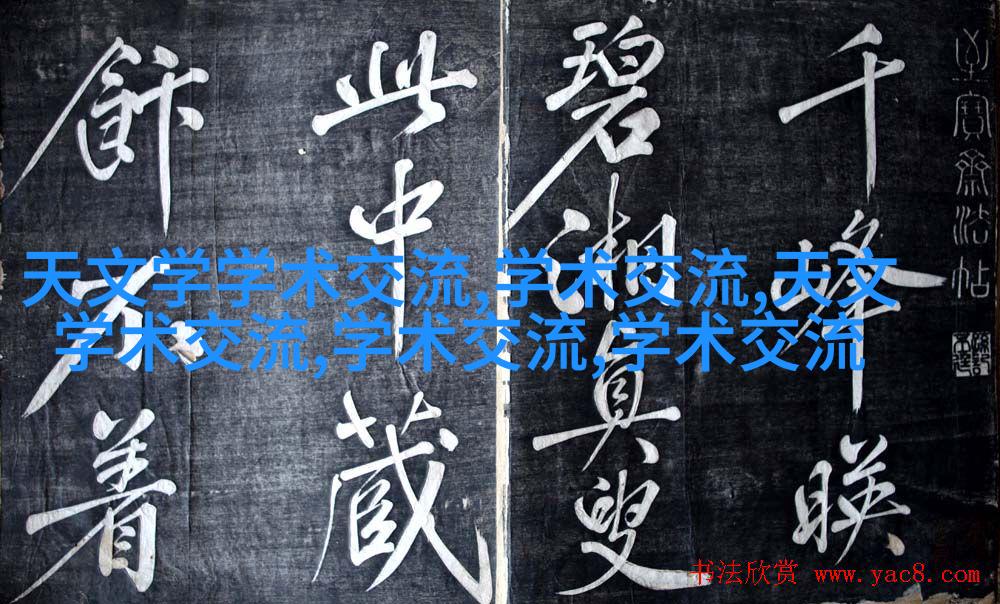 至寶齋法帖
千峰暎
碧湘真叟
此中藏
飰不着
天文学学术交流,学术交流,天文
学术交流,学术交流,学术交流
书法欣赏 www.yac8.com